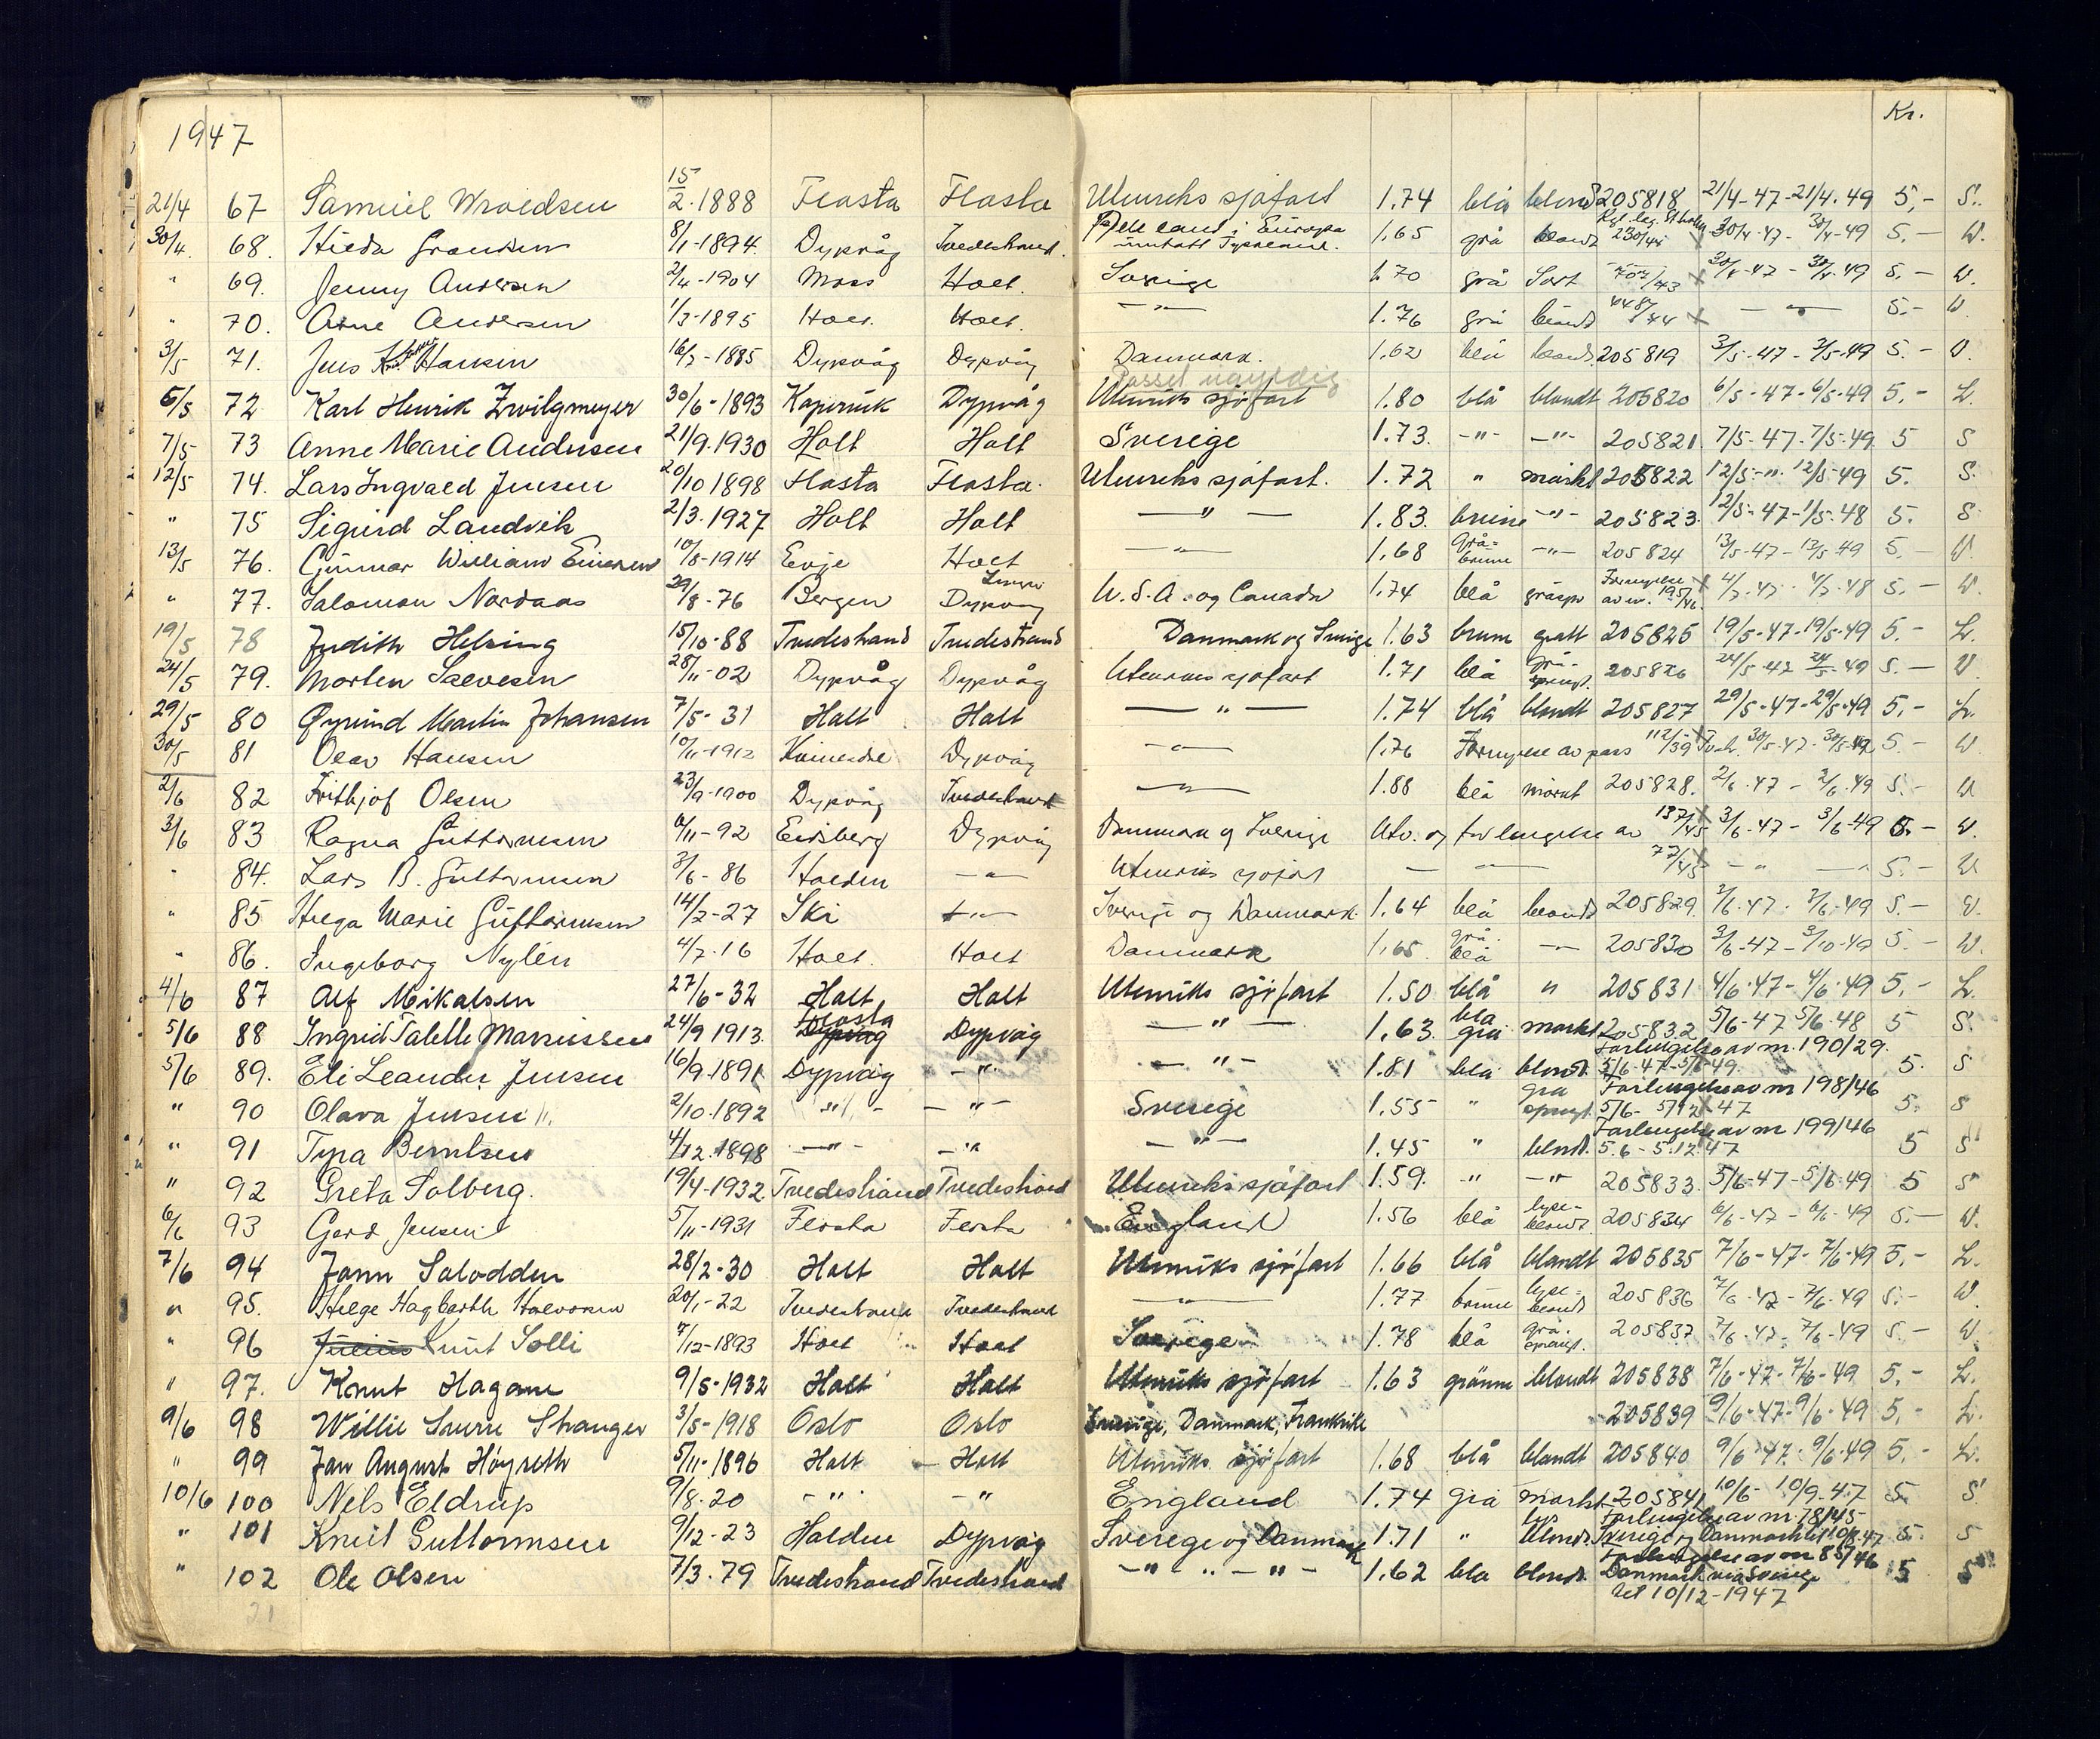 1947 Kr.
21/4 67 Samuel Wroldsen 15/2.1888 Flosta Flosta Utenriks sjøfart 1.74 blå blond 205818 21/4-47-21/4.49 5,- S.
30/4. 68. Hilda 8/1-1894. Dypvåg Tvedestrand. Alle land i Europa unntatt Tyskland. 1.65 grå blond 230/44 x 30/4-47- 30/4-49 5.- W.
" 69. Jenny Andersen 2/4-1904 Moss Holt. Sverige 1.70 grå Sort 707/43 x 30/4-47 - 30/4-49 5.- W.
" 70. Arne Andersen 1/3-1895 Holt. Holt. -"- 1.76 grå blond 448/44 x - " - 5.- W
3/5 71. Jens Hansen 16/7-1885 Dypvåg Dypvåg Danmark. 1.62 blå blond. 205819 3/5-47-3/5-49 5.- W.
Passet ugyldig
6/5 72 Karl Henrik Zwilgmeyer 30/6-1893 Kopervik Dypvåg Utenriks sjøfart 1.80 blå blondt 205820 6/5-47-6/5-49 5,- L.
7/5- 73 Anne Marie Andersen 21/9.1930 Holt Holt Sverige 1.73. -"- -"- 205821. 7/5-47-7/5-49 5 S
12/5 74. Lars Ingvald Jensen 20/10 1898 Flosta Flosta. Utenriks sjøfart. 1.72 " mørkt 205822 12/5-"-12/5-49 5. S.
" 75 Sigurd Landvik 2/3.1927 Holt Holt -"- 1.83. brune -"- 205823. 12/5-47-1/5-48 5. S
13/5 76. Gunnar William Einersen 10/8-1914 Evje Holt -"- 1.68 grå-brune -"- 205824 13/5-47-13/5-49 5.- W.
" 77. Salomon Nordaas 29/8-76 Bergen Dypvåg U.S.A. og Canada 1.74 blå gråspr Fornyelse av nr. 195/46. x 4/7-47-4/7-48 5.- W.
19/5 78 Judith Helsing 15/10-88 Tvedestrand Tvedestrand Danmark og Sverige 1.63 brune grått 205825 19/5-47-19/5-49 5.- L.
24/5 79. Morten Salvesen 28/11-02 Dypvåg Dypvåg Utenriks sjøfart 1.71 blå grå-spregt. 205826 24/5-47 24/5-49 5.- W
29/5 80 Øyvind Martin Johansen 7/5-31 Holt Holt -"- 1.74 blå blondt 205827 29/5-47-29/5-49 5,- L.
30/5 81 Olav Hansen 10/11-1912 Dypvåg -"- 1.76 Fornyelse av pass 112/39 30/5-47-30/5-49 5.- W
2/6 82 Frithjof Olsen 23/9-1900 Dypvåg Tvedestrand -"- 1.88 blå mørkt 205828. 2/6-47-2/6-49 5.- W
3/6 83 Ragna Guttormsen 6/11-92 Eidsberg Dypvåg Danmark og Sverige Utv. og forlengelse av 137/45 x 3/6-47-3/6-49 5.- W.
" 84. Lars B. Guttormsen 3/6-86 Halden -"- Utenriks sjøfart - " - 77/45 x -"- -"- 5.- W
" 85 Helga Marie Guttormsen 14/7-27 Ski -"- Sverige og Danmark. 1.64 blå blondt 205829. 3/6-47-3/6-49 5.- W.
" 86. Ingeborg Nylén 4/7-16 Holt. Holt Danmark 1.65 grå-blå -"- 205830 3/6-47-3/10-49 5.- W.
4/6 87 Alf Mikalsen 27/6-32 Holt Holt Utenriks sjøfart 1.50 blå " 205831 4/6-47-4/6-49 5,- L.
5/6 88 Ingrid Talette 24/9 1913. Flosta Dypvåg Dypvåg -"- 1.63. blå grå mørkt 205832 5/6-47 5/6-48 5 S.
5/6 89. Eli Leander Jensen 16/9.1891 Dypvåg -"- -"- 1.81 blå blond. Forlengelse av nr. 190/29. 5/6-47-5/6-49. 5. S
" 90 Olava Jensen 2/10.1892 -"- -"- Sverige 1.55 " grå sprengt. Forlengelse av nr 198/46 5/6- 5/12 47 5. S
" 91 Tyra Berntsen 4/12.1898 -"- -"- -"- 1.45 " blond. Forlengelse av nr 199/46 5.6-5.12.47 5 S
" 92 Greta Solberg. 19/4-1932. Tvedestrand Tvedestrand Utenriks sjøfart 1.59. " -"- 205833. 5/6-47-5/6-49 5 S
6/6 93 Gerd Jensen 5/11-1931 Flosta Flosta England 1.56 blå lyse-blondt 205834 6/6-47-6/6-49 5.- W.
7/6 94 Jann Salodden 28/2-30 Holt Holt Utenriks sjøfart 1.66 blå blondt 205835 7/6-47-7/6-49 5,- L.
" 95. Helge Hagbarth Halvorsen 20/1-22 Tvedestrand Tvedestrand -"- 1.77 brune lyse-blondt 205836 7/6-47-7/6-49 5.- W.
" 96 Julius Knut Solli 7/12-1893 Holt Holt Sverige 1.78 blå grå-sprengt. 205837 7/6-47-7/6-49 5.- W
" 97. Knut Hagane 9/5-1932 Holt Holt Utenriks sjøfart 1.63 grønne blondt 205838 7/6-47-7/6-49 5,- L.
9/6 98 Willie Snorre Stranger 3/5-1918 Oslo Oslo Sverige, Danmark, Frankrike 205839 9/6-47-9/6-49 5,- L.
" 99 Jan August Høgseth 5/11-1896 Holt Holt Utenriks sjøfart 1.68 blå blondt 205840 9/6-47-9/6-49 5,- L.
10/6 100 Nels Eldrup 9/8.20 -"- -"- England 1.74 grå mørkt 205841 10/6-10/9-47 5 S
" 101 Knut Guttormsen 9/12-23 Halden Dypvåg Sverege og Danmark 1.71 " lys blond. Forlengelse av nr 78/45 Sverege og Danmark til 10/12-47 5. S
" 102 Ole Olsen 7/3.79 Tvedestrand Tvedestrand -"- " -"- 1.62 blå blond. Forlengelse av nr 85/46 Danmark via Sverige til 10/12-1947 5 S
21